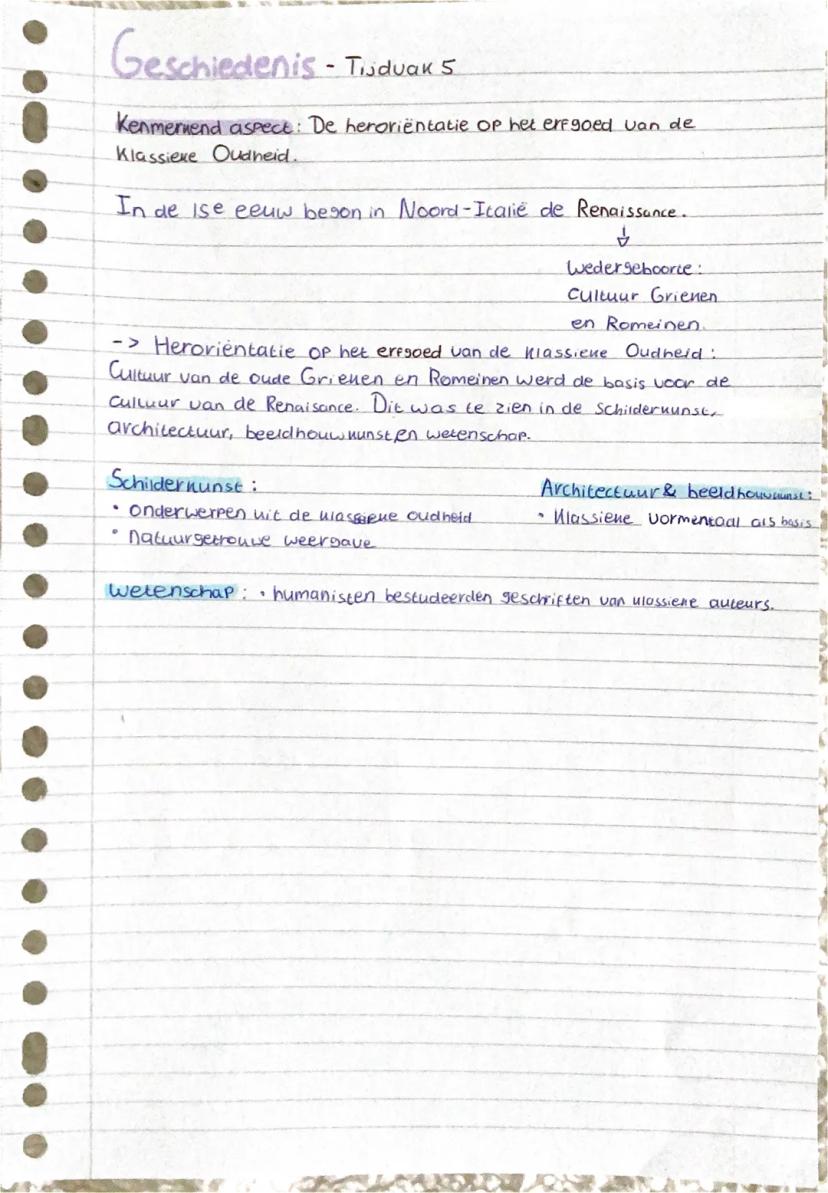 Geschiedenis - Tijdvak 5
Kenmerkend aspect: De heroriëntatie op het erfgoed van de
Klassieke Oudheid.
In de 15e eeuw begon in Noord-Italië de Renaissance.
↓
Wedergeboorte:
Cultuur Grieken
en Romeinen.
-> Heroriëntatie op het erfgoed van de klassieke Oudheid:
Cultuur van de oude Grieken en Romeinen werd de basis voor de
cultuur van de Renaisance. Dit was te zien in de schilderkunst,
architectuur, beeldhouwkunst en wetenschap.
Schilderkunst:
• onderwerpen uit de klassieke oudheid
• natuurgetrouwe weergave
Architectuur & beeldhouwkunst:
• Klassieke vormentaal als basis
Wetenschap: • humanisten bestudeerden geschriften van klassieke auteurs.